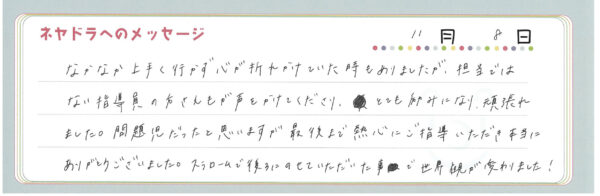 ネヤドラへのメッセージ 11月 8日
なかなか上手く行かず心が折れかけていた時もありましたが、担当では
ない指導員の方さんもが声をかけてくださり、とても励みになり、頑張れ
ました。問題児だったと思いますが最後まで熱心にご指導いただき本当に
ありがとうございました。スラロームで後ろにのせていただいた事で世界観が変わりました!